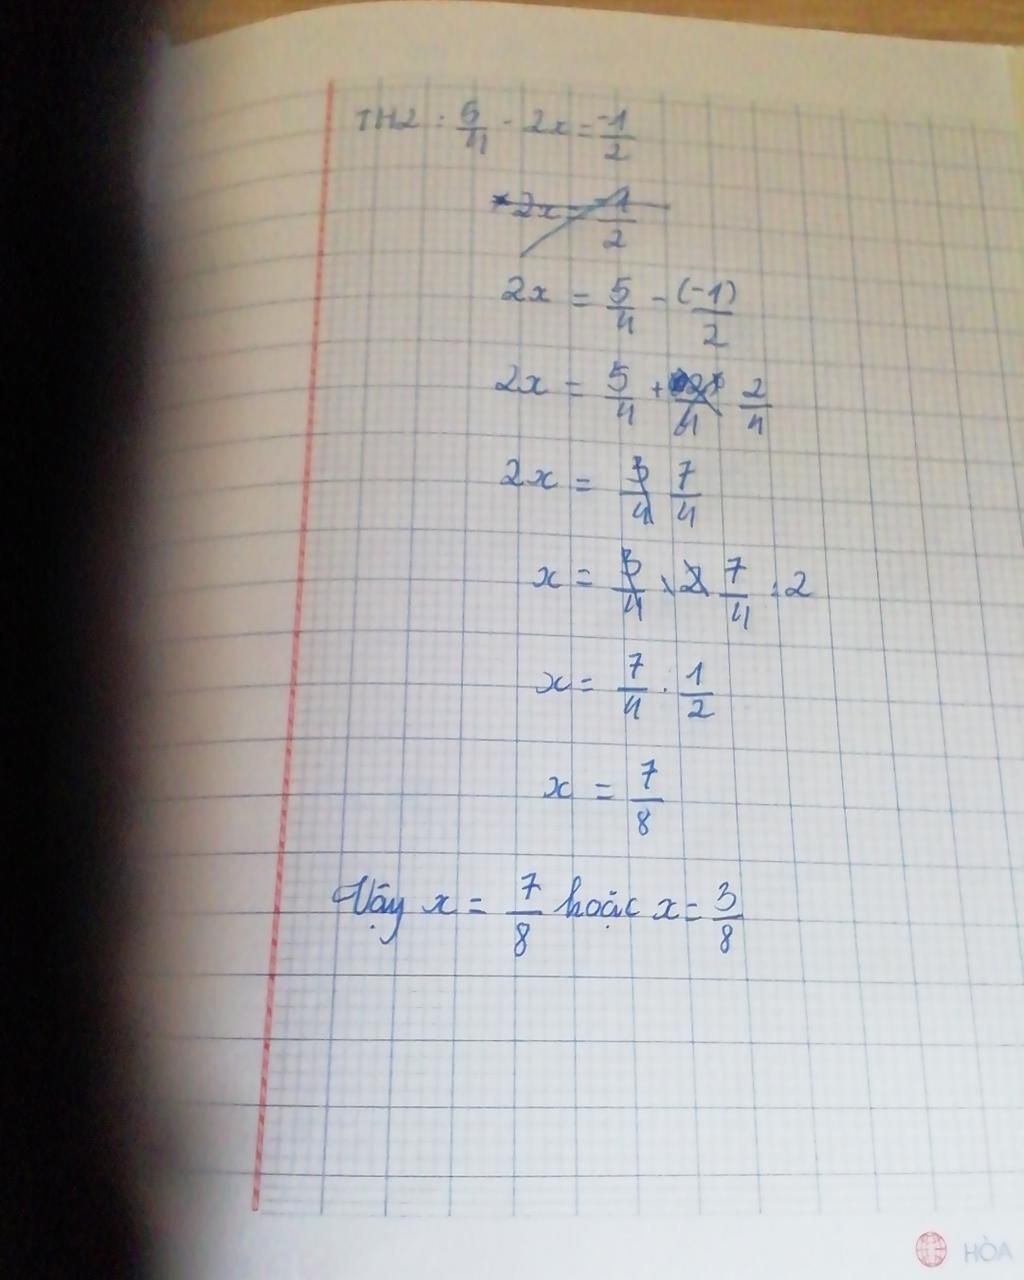 TH2 : 5/4 - 2x = -1/2
2x = -1/2
2x = 5/4 - (-1)/2
2x = 5/4 + 2/4
2x = 3/4 7/4
x = 3/4 : 2 7/4 : 2
x = 7/4 . 1/2
x = 7/8
Vậy x = 7/8 hoặc x = 3/8
HÒA